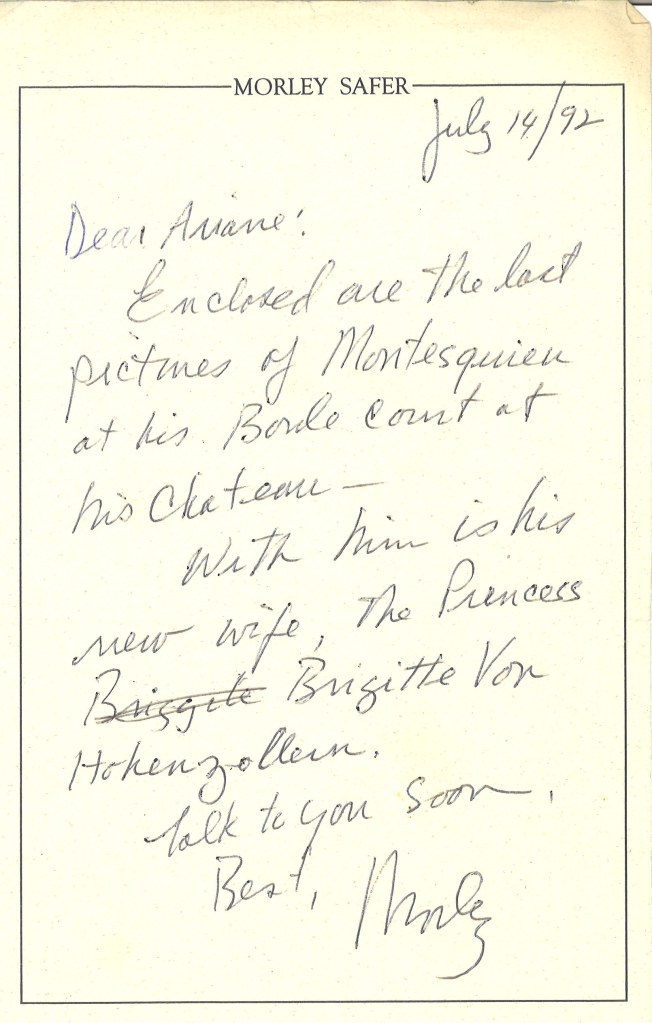 MORLEY SAFER
July 14/92
Dear Ariane:
Enclosed are the last
pictures of Montesquieu
at his Boule court at
his Chateau —
With him is his
new wife, The Princess
Briggite Brigitte Von
Hohenzollern.
Talk to you soon.
Best, Morley